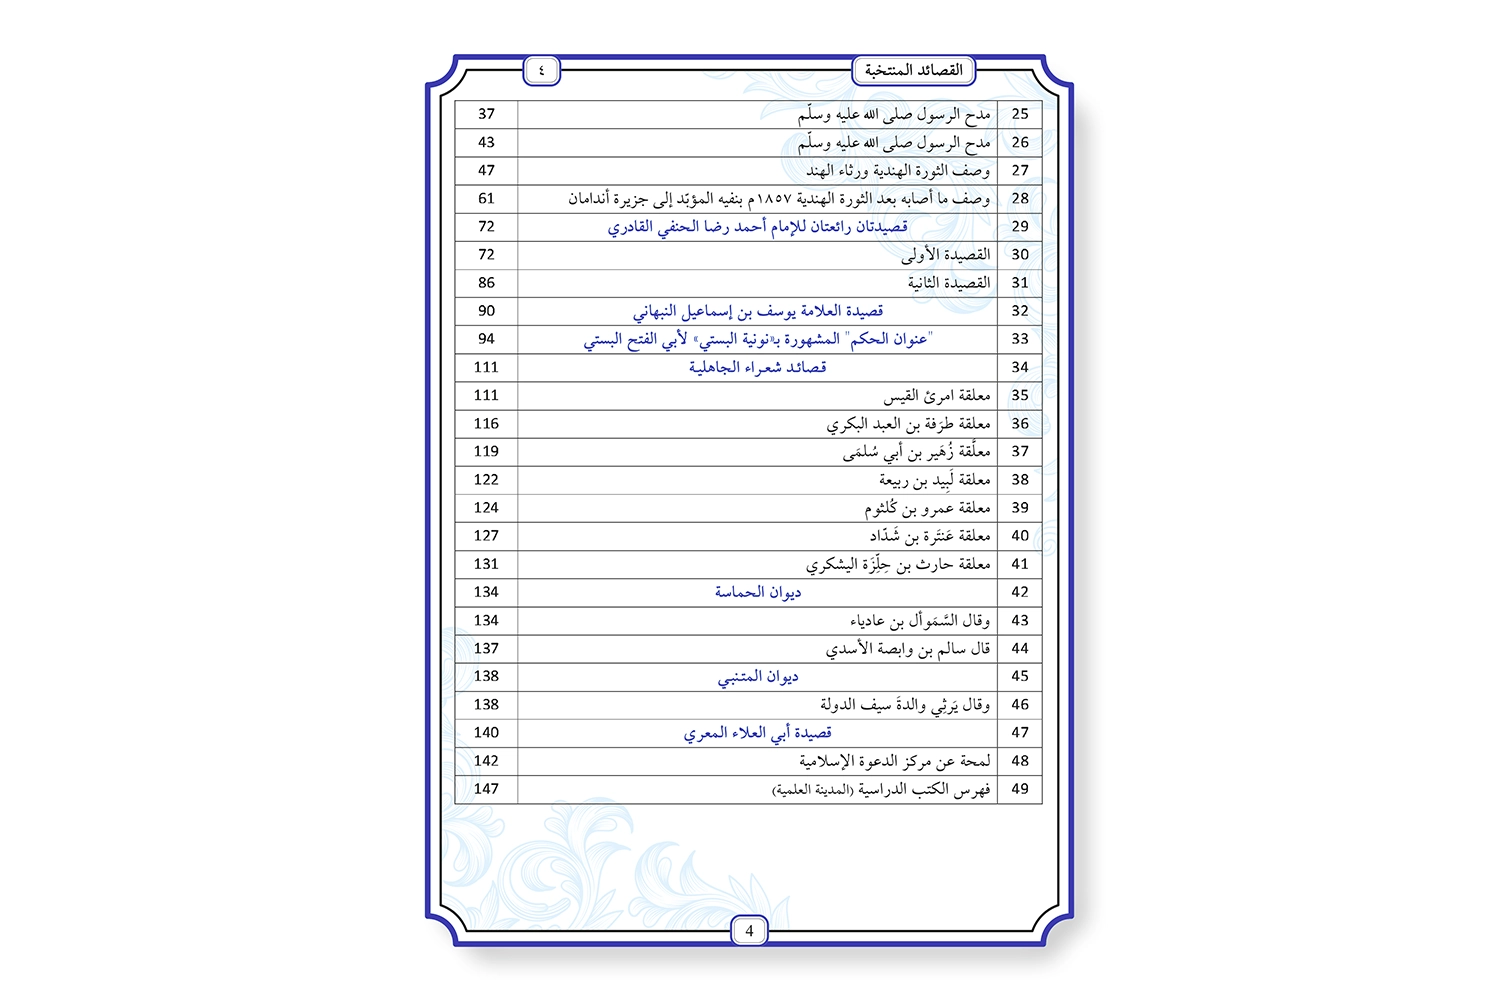 القصائد المنتخبة ٤
25 مدح الرسول صلى الله عليه وسلّم 37
26 مدح الرسول صلى الله عليه وسلّم 43
27 وصف الثورة الهندية ورثاء الهند 47
28 وصف ما أصابه بعد الثورة الهندية ١٨٥٧م بنفيه المؤبّد إلى جزيرة أندامان 61
29 قصيدتان رائعتان للإمام أحمد رضا الحنفي القادري 72
30 القصيدة الأولى 72
31 القصيدة الثانية 86
32 قصيدة العلامة يوسف بن إسماعيل النبهاني 90
33 "عنوان الحكم" المشهورة بـ«نونية البستي» لأبي الفتح البستي 94
34 قصائد شعراء الجاهلية 111
35 معلقة امرئ القيس 111
36 معلقة طرَفة بن العبد البكري 116
37 معلَّقة زُهَير بن أبي سُلمَى 119
38 معلقة لَبِيد بن ربيعة 122
39 معلقة عمرو بن كُلثوم 124
40 معلقة عَنتَرة بن شَدّاد 127
41 معلقة حارث بن حِلِّزَة اليشكري 131
42 ديوان الحماسة 134
43 وقال السَّمَوأل بن عادياء 134
44 قال سالم بن وابصة الأسدي 137
45 ديوان المتنبي 138
46 وقال يَرثِي والدةَ سيف الدولة 138
47 قصيدة أبي العلاء المعري 140
48 لمحة عن مركز الدعوة الإسلامية 142
49 فهرس الكتب الدراسية (المدينة العلمية) 147
4